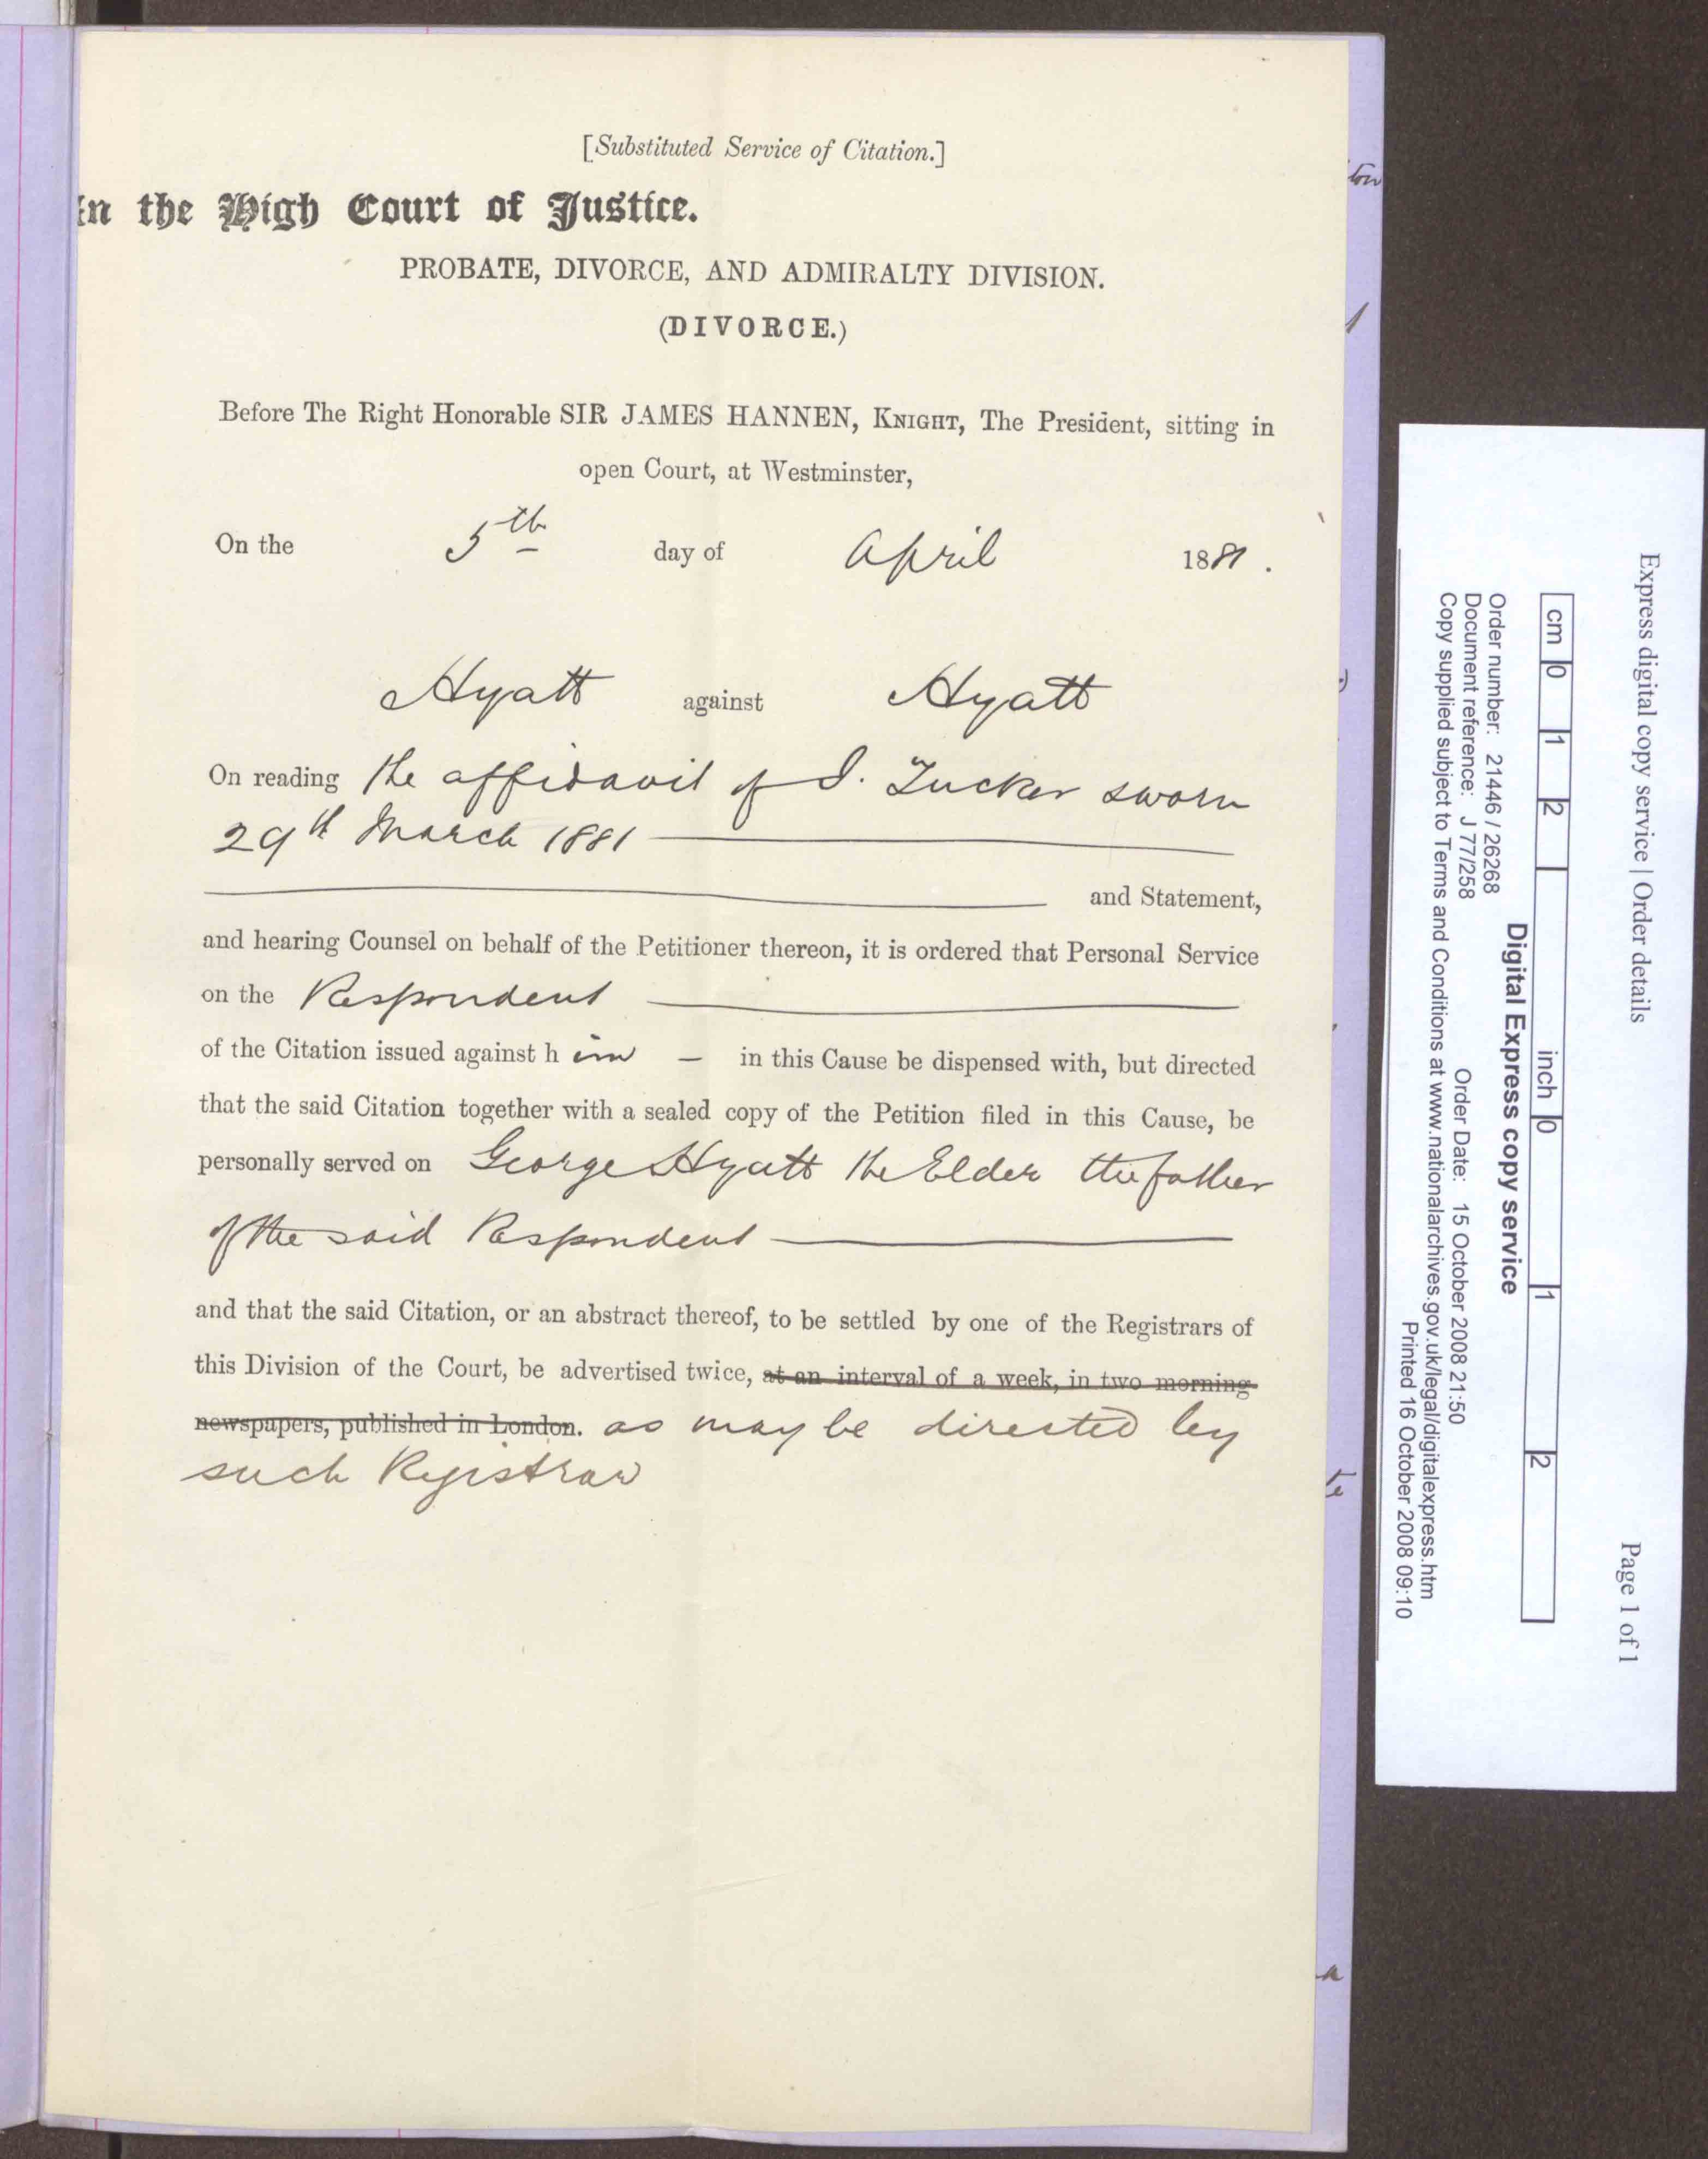 [Substituted Service of Citation.]
In the High Court of Justice.
PROBATE, DIVORCE, AND ADMIRALTY DIVISION.
(DIVORCE.)
Before The Right Honorable SIR JAMES HANNEN, KNIGHT, The President, sitting in
open Court, at Westminster,
On the 5th day of April 1881.
Hyatt against Hyatt
On reading the affidavit of J. Tucker sworn
29th March 1881
and Statement,
and hearing Counsel on behalf of the Petitioner thereon, it is ordered that Personal Service
on the Respondent
of the Citation issued against him — in this Cause be dispensed with, but directed
that the said Citation together with a sealed copy of the Petition filed in this Cause, be
personally served on George Hyatt the Elder the father
of the said Respondent
and that the said Citation, or an abstract thereof, to be settled by one of the Registrars of
this Division of the Court, be advertised twice, at an interval of a week, in two morning
newspapers, published in London. as may be directed by
such Registrar
Express digital copy service | Order details Page 1 of 1
cm 0 1 2 inch 0 1 2
Digital Express copy service
Order number: 21446 / 26268 Order Date: 15 October 2008 21:50
Document reference: J 77/258
Copy supplied subject to Terms and Conditions at www.nationalarchives.gov.uk/legal/digitalexpress.htm
Printed 16 October 2008 09:10